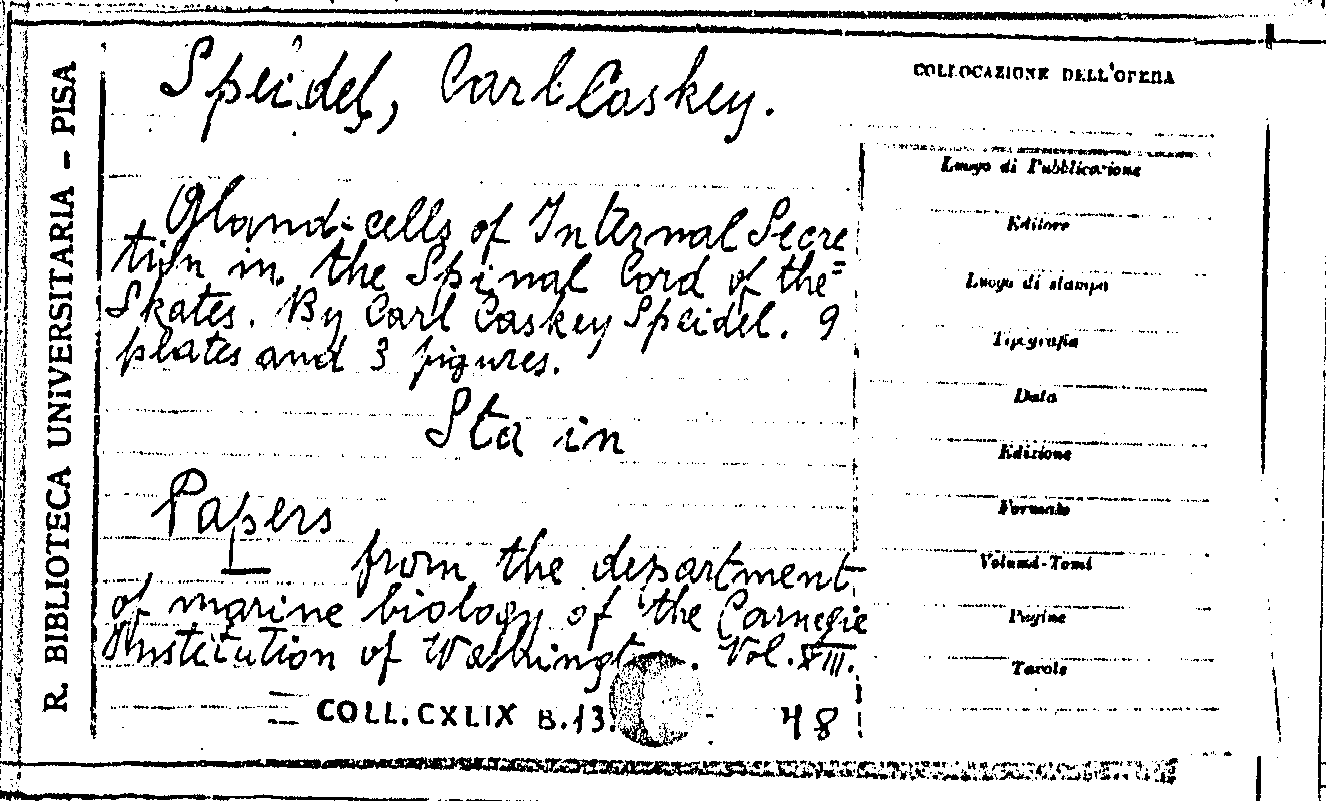 R. BIBLIOTECA UNIVERSITARIA - PISA
Speidel, Carl Caskey.
Gland-cells of Internal Secre=
tion in the Spinal Cord of the
Skates. By Carl Caskey Speidel. 9
plates and 3 figures.
Sta in
Papers
from the department
of marine biology of the Carnegie
Institution of Washington. Vol. XIII.
COLL. CXLIX B.13.
48
COLLOCAZIONE DELL'OPERA
Luogo di Pubblicazione
Editore
Luogo di stampa
Tipografia
Data
Edizione
Formato
Volumi-Tomi
Pagine
Tavole